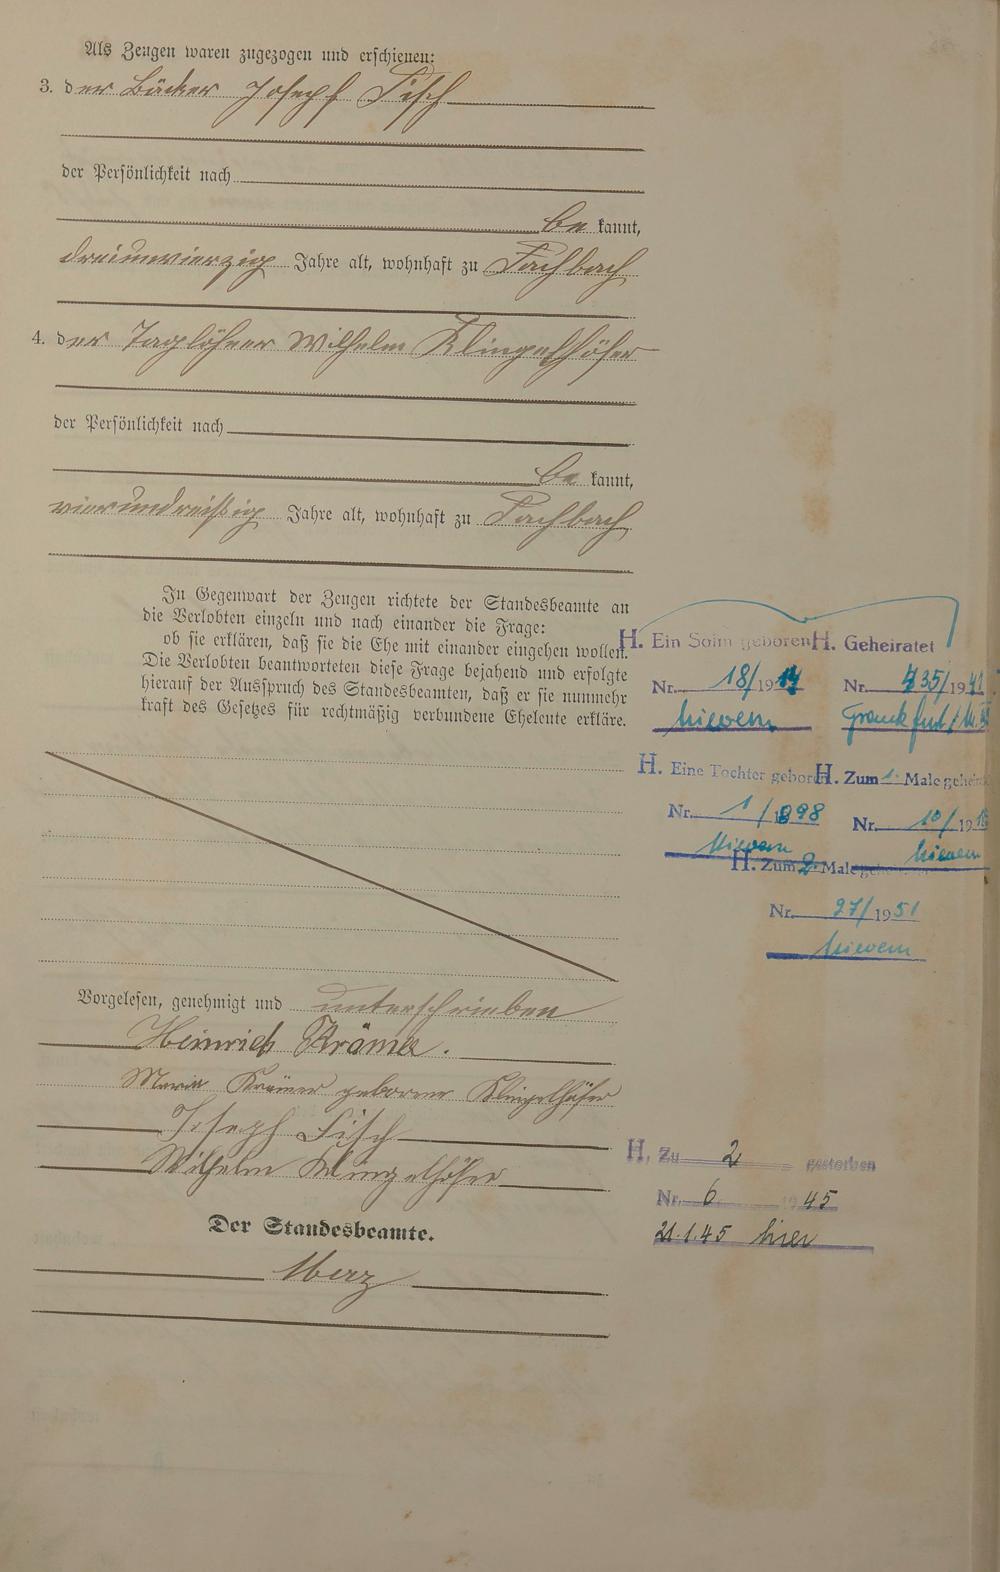 Als Zeugen waren zugezogen und erschienen:
3. der Bäcker Joseph Fisch
der Persönlichkeit nach
be kannt,
dreiunvierzig Jahre alt, wohnhaft zu Fachbach
4. der Taglöhner Wilhelm Klingelhöfer
der Persönlichkeit nach
be kannt,
vierundreißig Jahre alt, wohnhaft zu Fachbach
In Gegenwart der Zeugen richtete der Standesbeamte an
die Verlobten einzeln und nach einander die Frage:
ob sie erklären, daß sie die Ehe mit einander eingehen wollen.
Die Verlobten beantworteten diese Frage bejahend und erfolgte
hierauf der Ausspruch des Standesbeamten, daß er sie nunmehr
kraft des Gesetzes für rechtmäßig verbundene Eheleute erkläre.
Vorgelesen, genehmigt und unterschrieben
Heinrich Krämer.
Maria Krämer geborene Klingelhöfer
Joseph Fisch
Wilhelm Klingelhöfer
Der Standesbeamte.
Merz
H. Ein Sohn geboren
Nr. 18/1914
Nievern
H. Geheiratet
Nr. 435/1941
Frankfurt/M.
H. Eine Tochter geboren
Nr. 1/1898
Nievern
H. Zum 1. Male geheiratet
Nr. 10/19
Nievern
H. Zum 2. Male geheiratet
Nr. 27/1951
Nievern
H. Zu 2 gestorben
Nr. 6 1945
21.1.45 hier